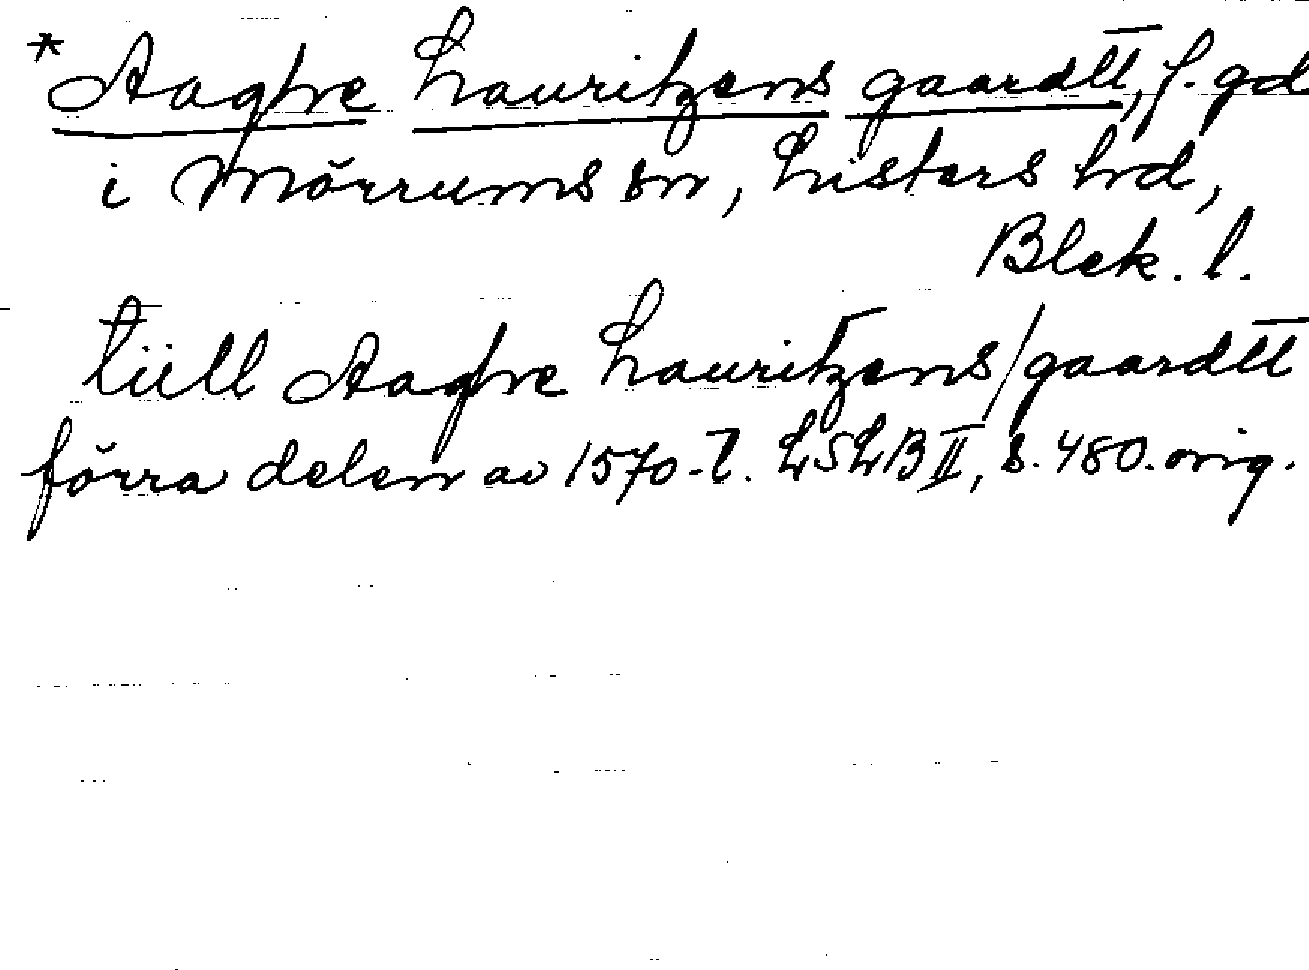 * Aaghe Lauritzens gaardtt, f. gd
i Mörrums sn, Listers hd,
Blek. l.
tiill Aaghe Lauritzens/gaardtt
förra delen av 1570-t. LSLB II, s. 480. orig.